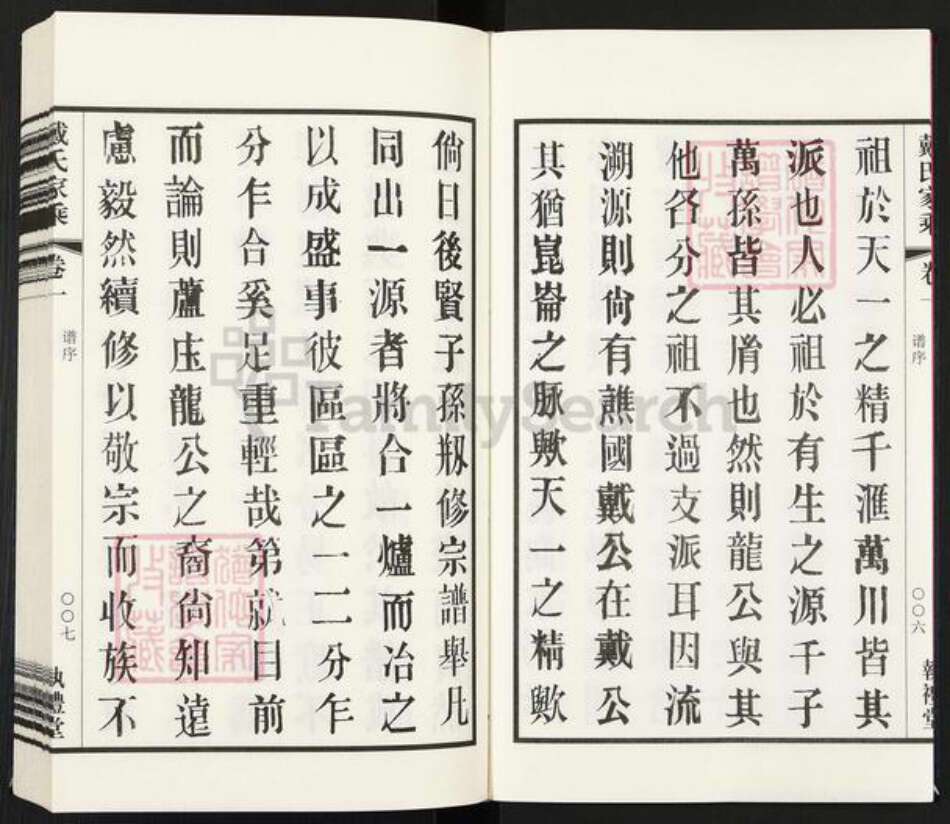 戴氏家乘 卷一
谱序
〇〇六
執禮堂
祖於天一之精千滙萬川皆其
派也人必祖於有生之源千子
萬孫皆其屑也然則龍公與其
他各分之祖不過支派耳因流
溯源則尙有譙國戴公在戴公
其猶崑崙之脈歟天一之精歟
倘日後賢子孫刱修宗譜舉凡
同出一源者將合一爐而冶之
以成盛事彼區區之一二分乍
分乍合奚足重輕哉第就目前
而論則蘆庄龍公之裔尙知遠
慮毅然續修以敬宗而收族不
戴氏家乘 卷一
谱序
〇〇七
執禮堂
FamilySearch
收藏